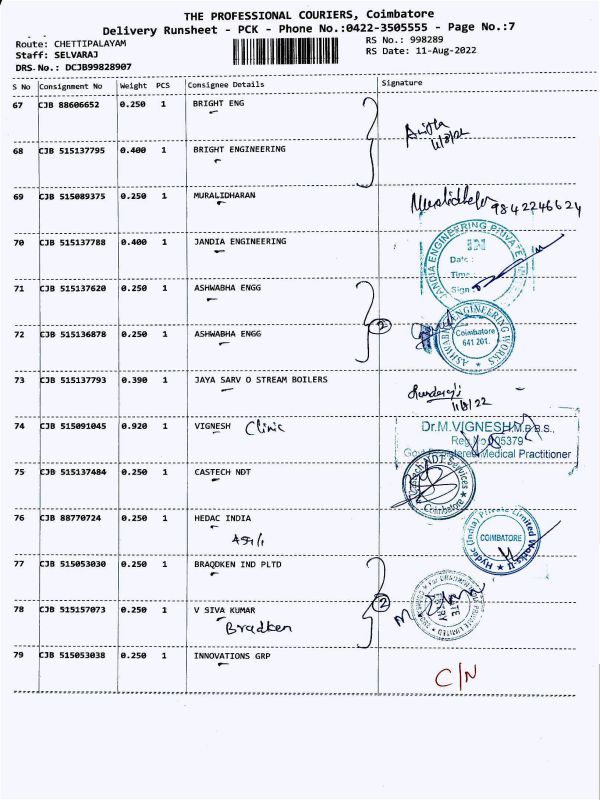 THE PROFESSIONAL COURIERS, Coimbatore
Delivery Runsheet - PCK - Phone No.:0422-3505555 - Page No.:7
Route: CHETTIPALAYAM RS No.: 998289
Staff: SELVARAJ RS Date: 11-Aug-2022
DRS.No.: DCJB99828907
S No Consignment No Weight PCS Consignee Details Signature
67 CJB 88606652 0.250 1 BRIGHT ENG
11/8/22
68 CJB 515137795 0.400 1 BRIGHT ENGINEERING
69 CJB 515089375 0.250 1 MURALIDHARAN
9842246624
70 CJB 515137788 0.400 1 JANDIA ENGINEERING
JANDIA ENGINEERING PRIVATE
IN
Date :
Time :
Sign :
71 CJB 515137620 0.250 1 ASHWABHA ENGG
2
72 CJB 515136878 0.250 1 ASHWABHA ENGG
ASHWABHA ENGINEERING WORKS
Coimbatore
641 201.
73 CJB 515137793 0.390 1 JAYA SARV O STREAM BOILERS
11/8/22
74 CJB 515091045 0.920 1 VIGNESH Clinic
Dr.M.VIGNESH,M.B.B.S.,
Medical Practitioner
75 CJB 515137484 0.250 1 CASTECH NDT
NDT Services
Coimbatore
76 CJB 88770724 0.250 1 HEDAC INDIA
Hydac (India) Private Limited Works-II
COIMBATORE
77 CJB 515053030 0.250 1 BRAQDKEN IND PLTD
2
78 CJB 515157073 0.250 1 V SIVA KUMAR
Bradken
PRIVATE LIMITED
79 CJB 515053038 0.250 1 INNOVATIONS GRP
C/N